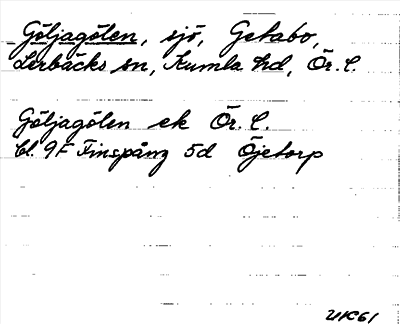 Göljagölen, sjö, Getabo,
Lerbäcks sn, Kumla hd, Ör. l.
Göljagölen ek Ör. l.
bl. 9F Finspång 5d Öjetorp